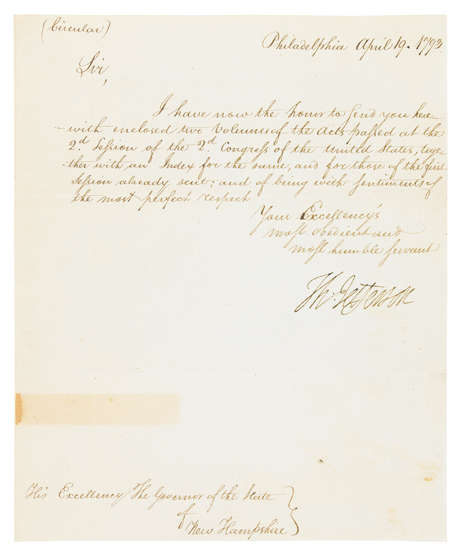 (Circular)
Philadelphia April 19. 1793
Sir,
I have now the honor to send you here
-with enclosed two Volumes of the Acts passed at the
2d Session of the 2d Congress of the United States, toge
ther with an Index for the same, and for those of the first
Session already sent; and of being with sentiments of
the most perfect respect
Your Excellency's
most obedient and
most humble servant
Th: Jefferson
His Excellency The Governor of the State
of
New Hampshire